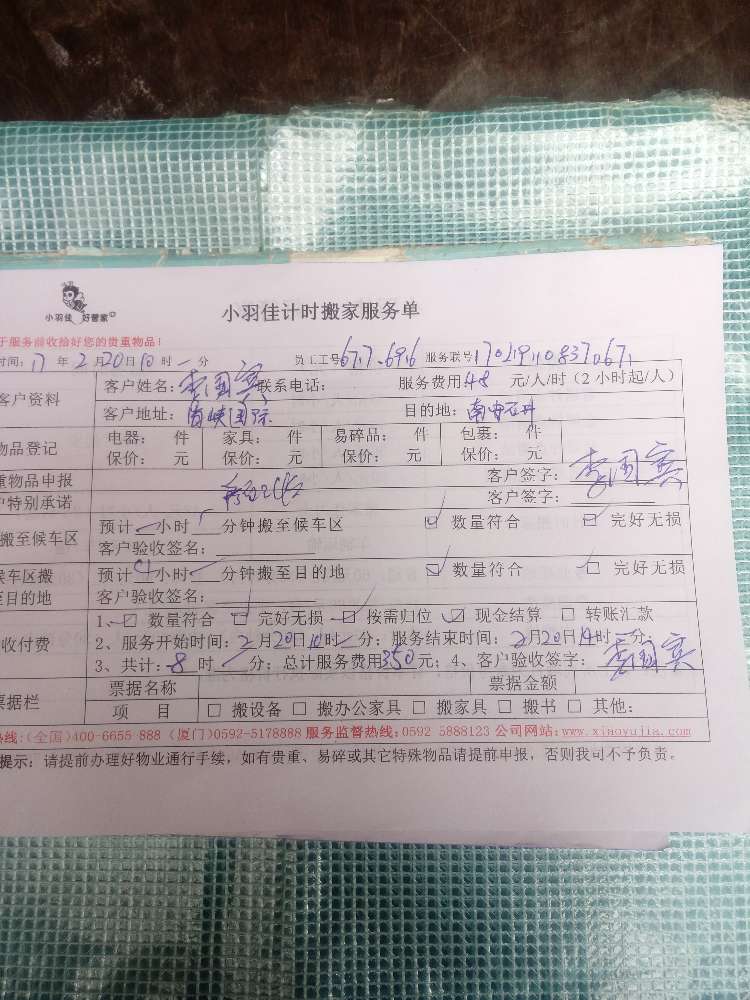 小羽佳 好管家
小羽佳计时搬家服务单
于服务前收拾好您的贵重物品!
时间: 17 年 2 月 20 日 10 时 一 分 员工工号 677.696 服务联号
客户资料 客户姓名: 李国宾 联系电话: 服务费用 48 元/人/时 (2 小时起/人)
客户地址: 海峡国际 目的地: 南安石井
物品登记 电器: 件 家具: 件 易碎品: 件 包裹: 件
保价: 元 保价: 元 保价: 元 保价: 元
重物品申报 客户签字: 李国宾
户特别承诺 客户签字:
搬至候车区 预计 小时 分钟搬至候车区 ☑ 数量符合 ☑ 完好无损
客户验收签名:
候车区搬至目的地 预计 小时 分钟搬至目的地 ☑ 数量符合 ☑ 完好无损
客户验收签名:
收付费 1、☑ 数量符合 ☑ 完好无损 ☑ 按需归位 ☑ 现金结算 □ 转账汇款
2、服务开始时间: 2 月 20 日 10 时 一 分; 服务结束时间: 2 月 20 日 14 时 一 分
3、共计: 8 时 一 分; 总计服务费用 350 元; 4、客户验收签字: 李国宾
票据栏 票据名称 票据金额
项 目 □ 搬设备 □ 搬办公家具 □ 搬家具 □ 搬书 □ 其他:
热线:(全国)400-6655 888 (厦门)0592-5178888 服务监督热线:0592 5888123 公司网站:www.xiaoyujia.com
提示: 请提前办理好物业通行手续, 如有贵重、易碎或其它特殊物品请提前申报, 否则我司不予负责。